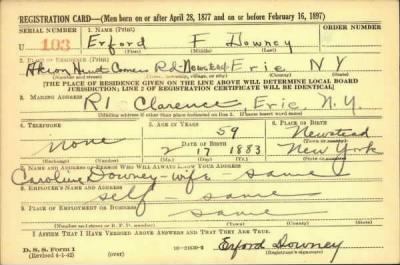 REGISTRATION CARD—(Men born on or after April 28, 1877 and on or before February 16, 1897)
SERIAL NUMBER 1. NAME (Print) ORDER NUMBER
U 103 Erford F Downey
(First) (Middle) (Last)
2. PLACE OF RESIDENCE (Print)
Akron Hunt Corners Rd. Newstead Erie N Y
(Number and street) (Town, township, village, or city) (County) (State)
[THE PLACE OF RESIDENCE GIVEN ON THE LINE ABOVE WILL DETERMINE LOCAL BOARD
JURISDICTION; LINE 2 OF REGISTRATION CERTIFICATE WILL BE IDENTICAL]
3. MAILING ADDRESS
R1 Clarence, Erie, N.Y.
[Mailing address if other than place indicated on line 2. If same insert word same]
4. TELEPHONE 5. AGE IN YEARS 6. PLACE OF BIRTH
59 Newstead
none DATE OF BIRTH (Town or county)
2 17 1883 New York
(Exchange) (Number) (Mo.) (Day) (Yr.) (State or country)
7. NAME AND ADDRESS OF PERSON WHO WILL ALWAYS KNOW YOUR ADDRESS
Caroline Downey - wife same
8. EMPLOYER'S NAME AND ADDRESS
self - same
9. PLACE OF EMPLOYMENT OR BUSINESS
same
(Number and street or R. F. D. number) (Town) (County) (State)
I AFFIRM THAT I HAVE VERIFIED ABOVE ANSWERS AND THAT THEY ARE TRUE.
D. S. S. Form 1
(Revised 4-1-42) (over) 16-21630-2 Erford Downey
(Registrant's signature)